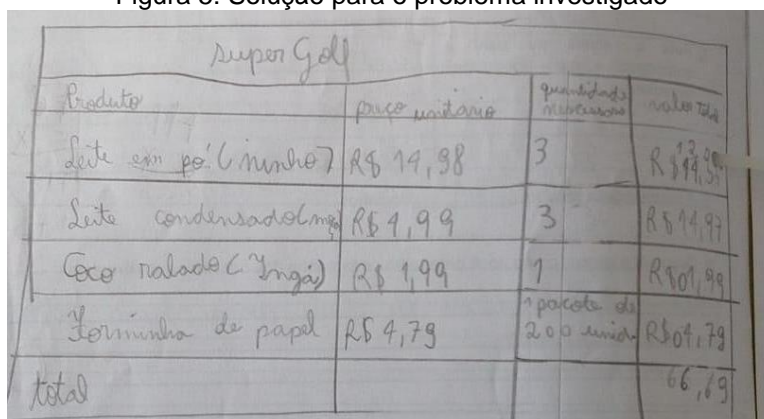 Figura 5. Solução para o problema investigado
Super Goll
Produto preço unitário quantidade necessária valor total
Leite em pó (ninho) R$ 14,98 3 R$
Leite condensado R$ 4,99 3 R$ 14,97
Coco ralado (Ingá) R$ 1,99 1 R$01,99
Forminha de papel R$ 4,79 1 pacote de
200 unid. R$04,79
total 66,69